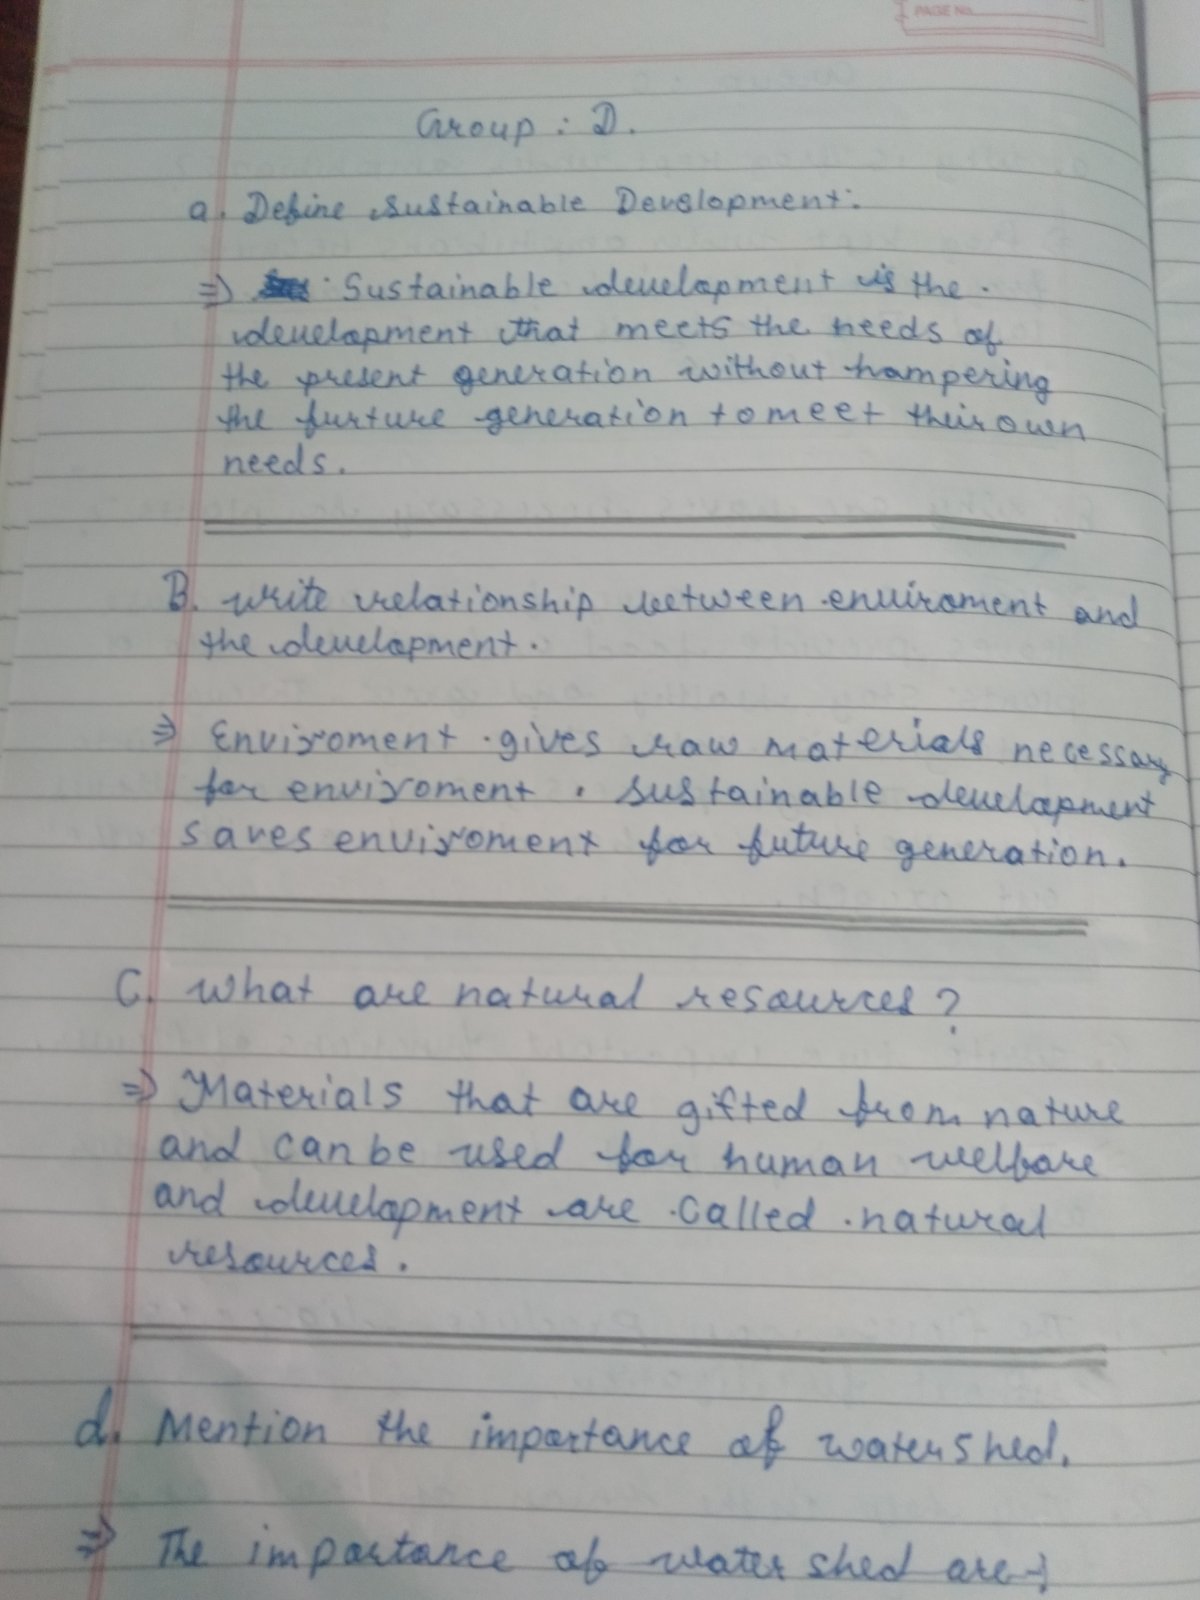 PAGE No.
Group : D.
a. Define sustainable Development:
⇒ Sustainable development is the
development that meets the needs of
the present generation without hampering
the furture generation to meet their own
needs.
B. write relationship between enviroment and
the development.
⇒ Enviroment gives raw materials necessary
for enviroment. sustainable development
saves enviroment for future generation.
C. what are natural resources?
⇒ Materials that are gifted from nature
and can be used for human welfare
and development are called natural
resources.
d. Mention the importance of watershed.
⇒ The importance of water shed are→